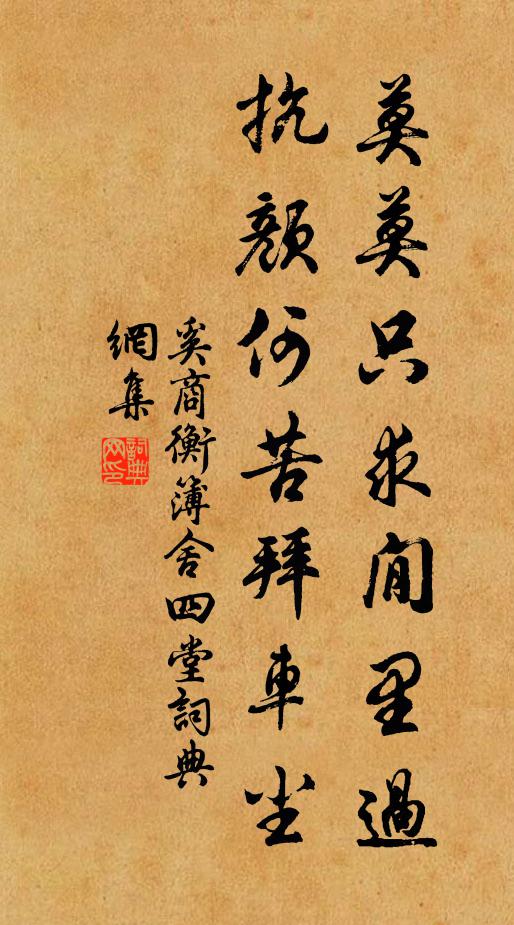 莫莫只求閒里過
抗顏何苦拜車尘
奚商衡簿舍四堂詞典
網集
詞典
网印